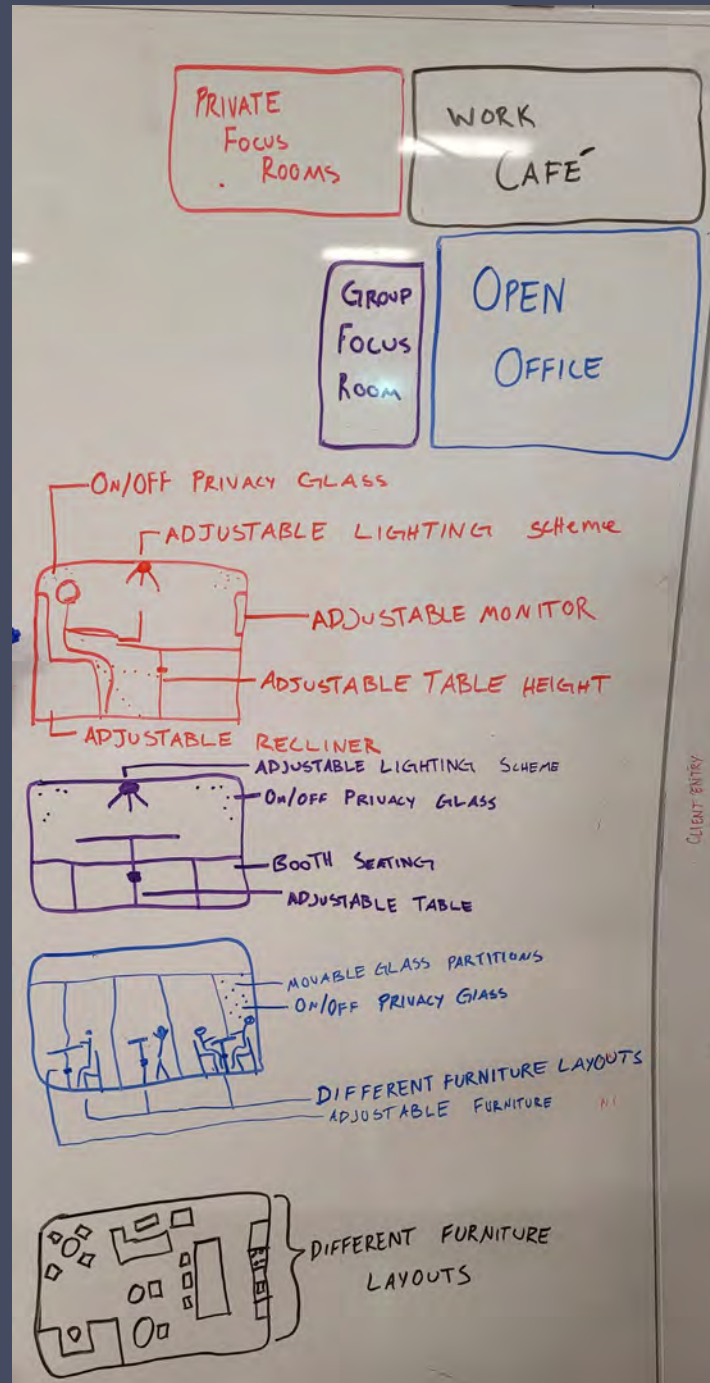 PRIVATE
FOCUS
ROOMS
WORK
CAFÉ
GROUP
FOCUS
ROOM
OPEN
OFFICE
ON/OFF PRIVACY GLASS
ADJUSTABLE LIGHTING SCHEME
ADJUSTABLE MONITOR
ADJUSTABLE TABLE HEIGHT
ADJUSTABLE RECLINER
ADJUSTABLE LIGHTING SCHEME
ON/OFF PRIVACY GLASS
BOOTH SEATING
ADJUSTABLE TABLE
CLIENT ENTRY
MOVABLE GLASS PARTITIONS
ON/OFF PRIVACY GLASS
DIFFERENT FURNITURE LAYOUTS
ADJUSTABLE FURNITURE
DIFFERENT FURNITURE
LAYOUTS